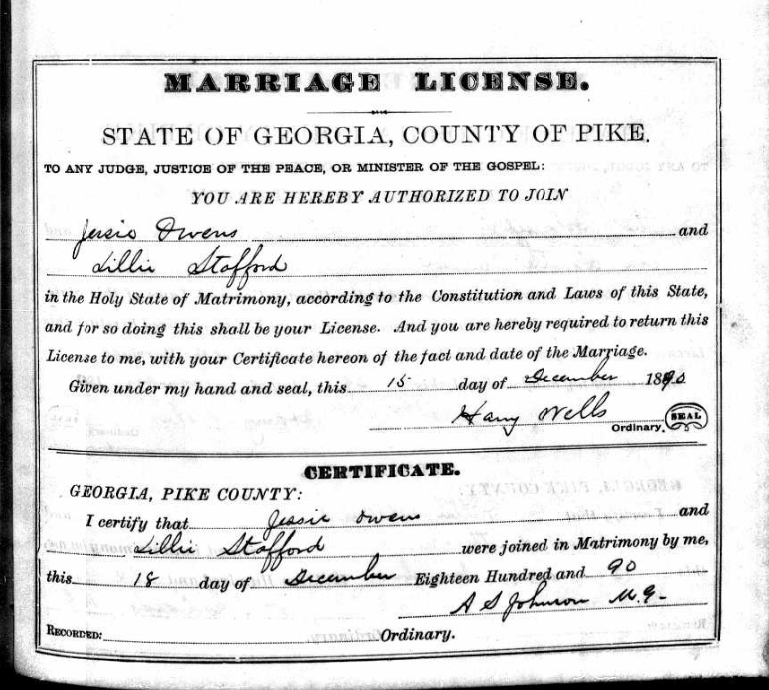 MARRIAGE LICENSE.
STATE OF GEORGIA, COUNTY OF PIKE.
TO ANY JUDGE, JUSTICE OF THE PEACE, OR MINISTER OF THE GOSPEL:
YOU ARE HEREBY AUTHORIZED TO JOIN
Jessie Owens and
Lillie Stafford
in the Holy State of Matrimony, according to the Constitution and Laws of this State,
and for so doing this shall be your License. And you are hereby required to return this
License to me, with your Certificate hereon of the fact and date of the Marriage.
Given under my hand and seal, this 15 day of December 1890
Harry Wells SEAL
Ordinary.
CERTIFICATE.
GEORGIA, PIKE COUNTY:
I certify that Jessie Owens and
Lillie Stafford were joined in Matrimony by me,
this 18 day of December Eighteen Hundred and 90
A S Johnson M.G.
RECORDED: Ordinary.